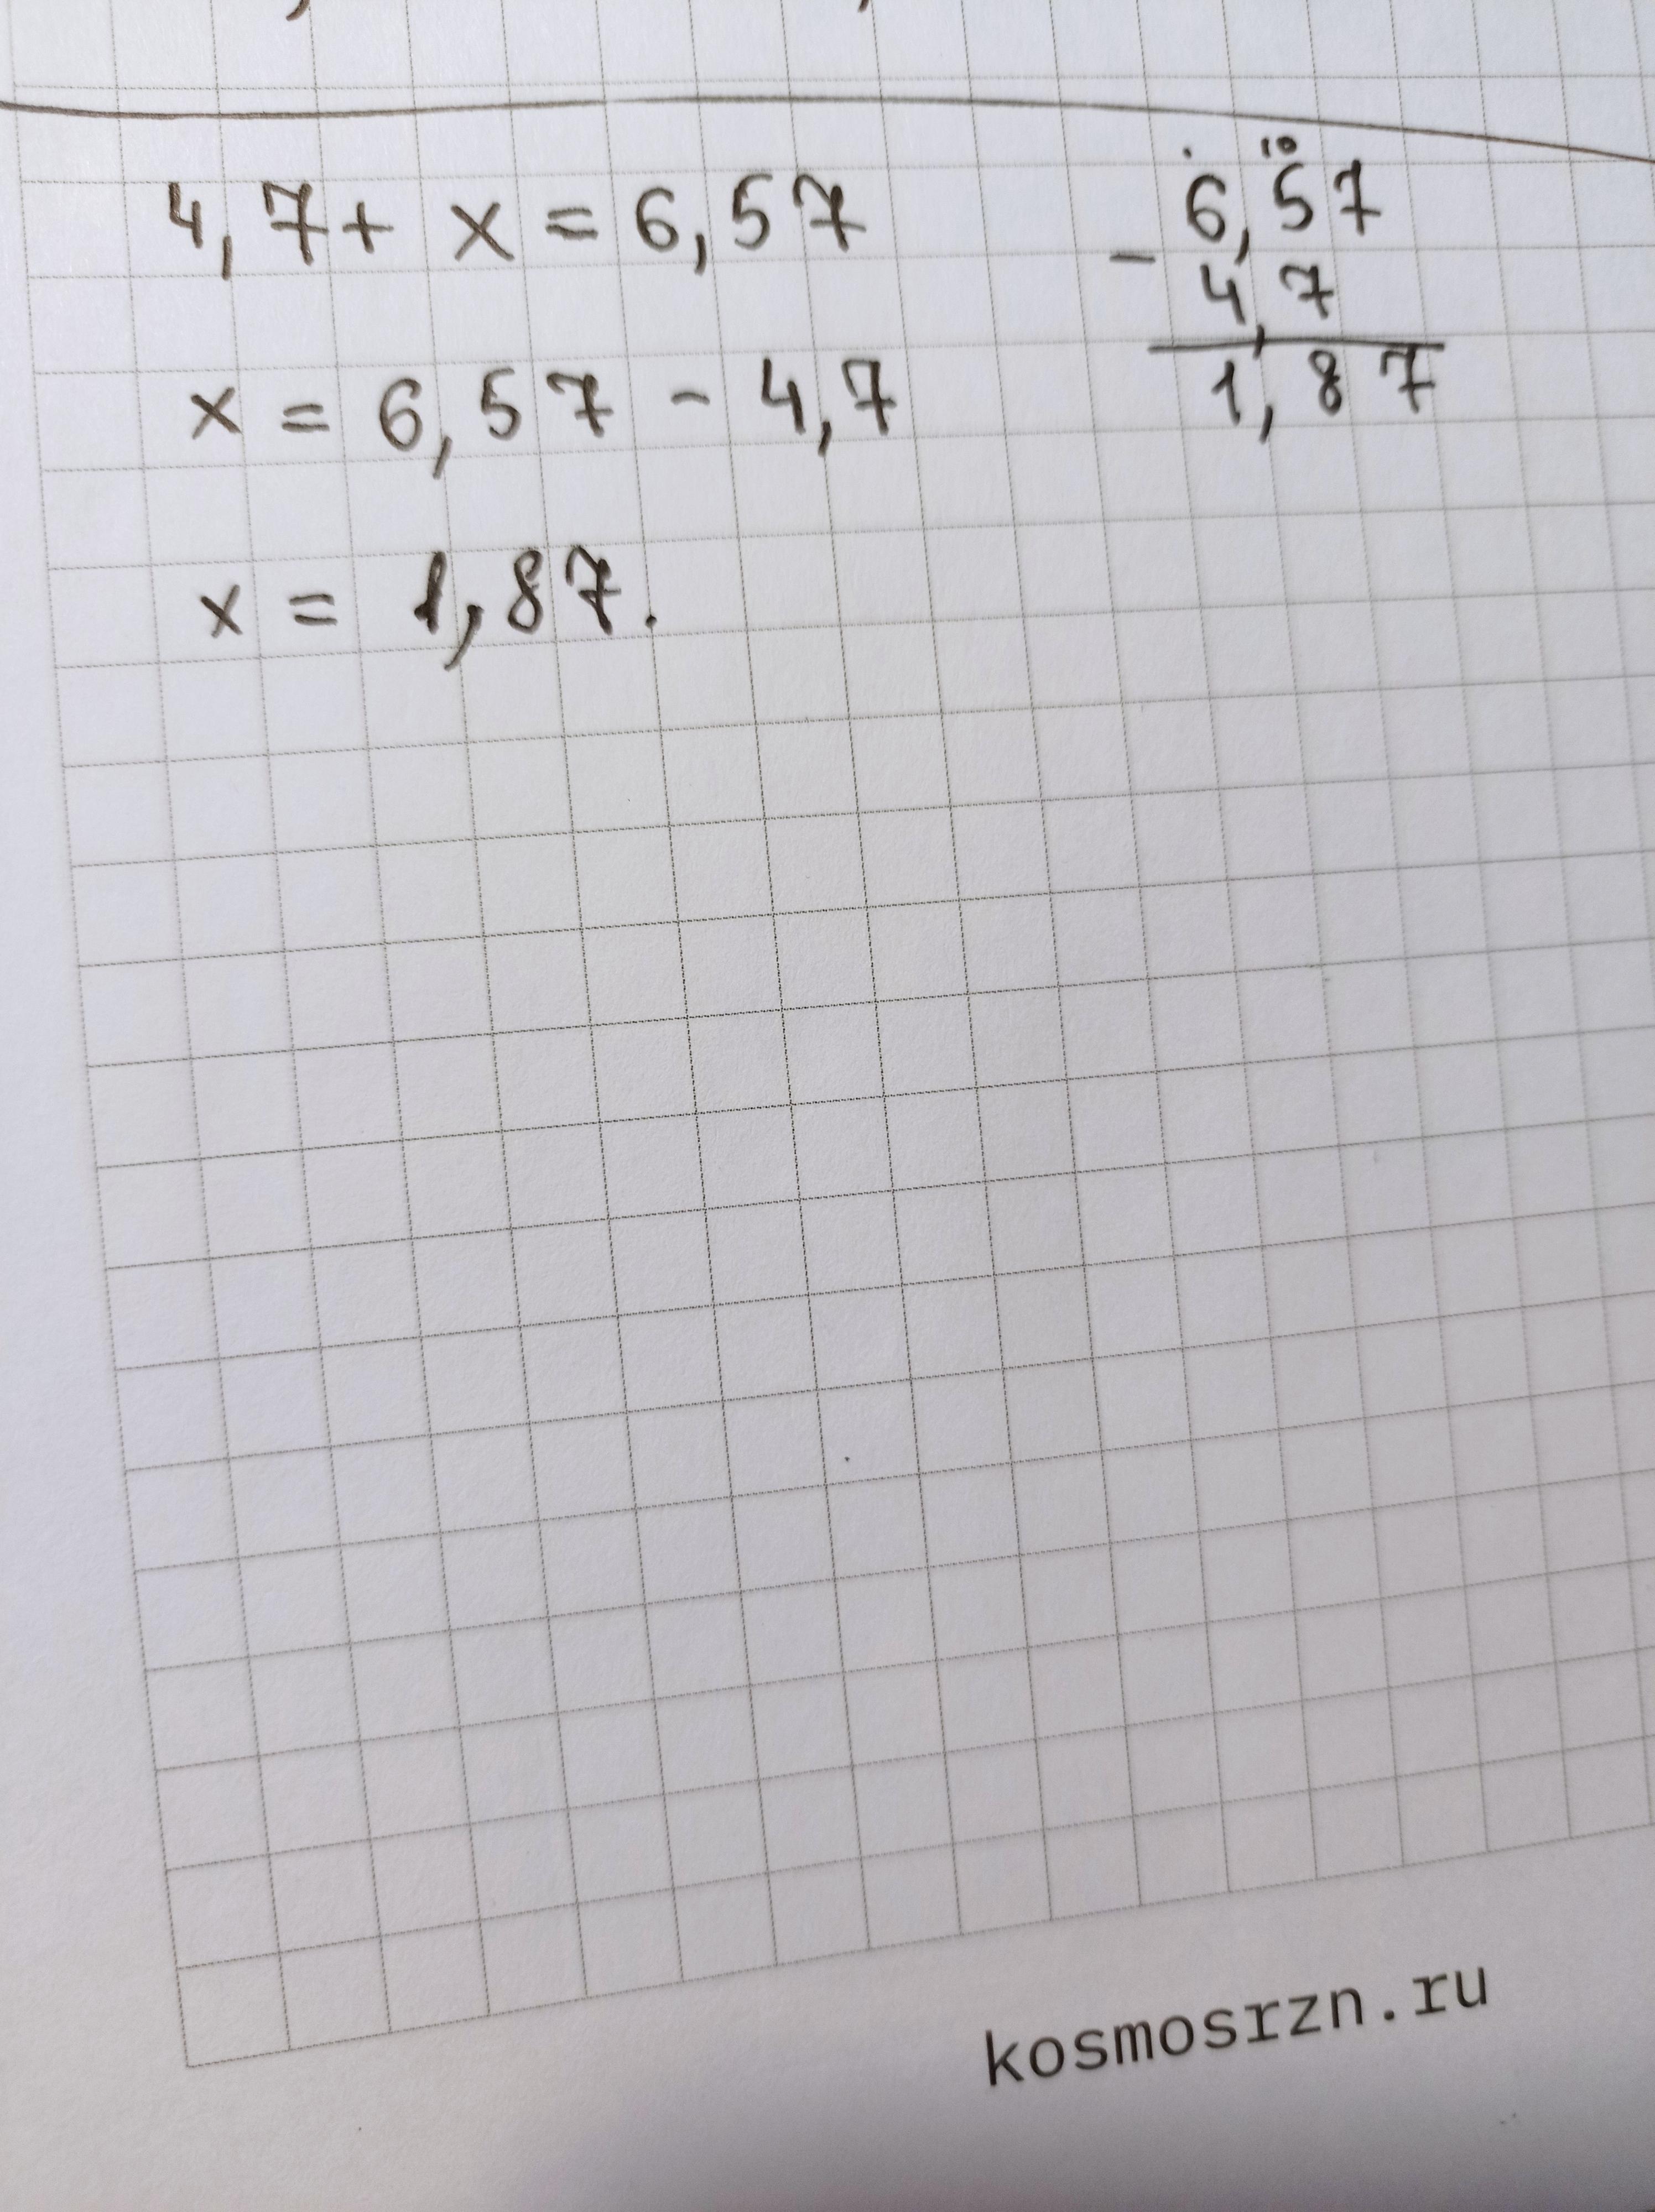 4,7+ x = 6,57
x = 6,57 - 4,7
x = 1,87.
. 10
6,57
-
4,7
1,87
kosmosrzn.ru